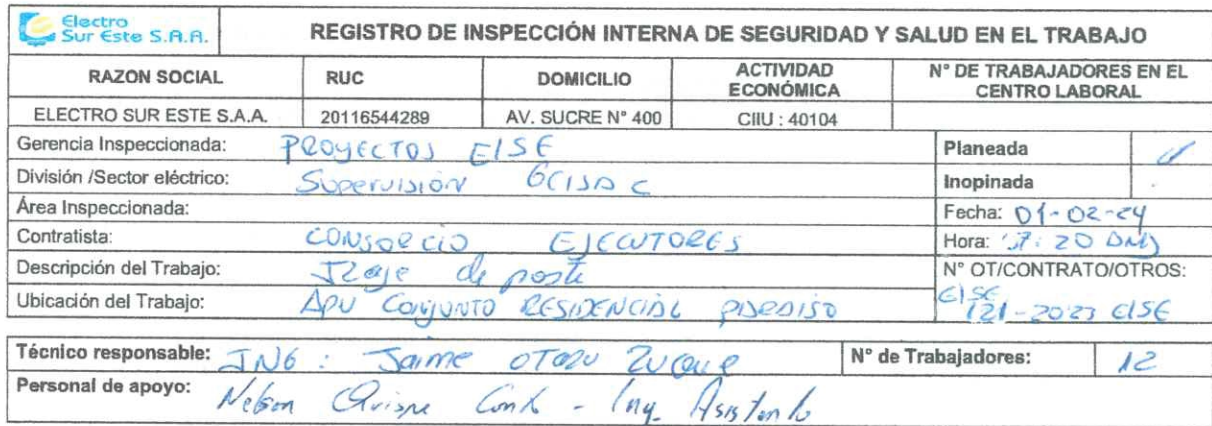 Electro
Sur Este S.A.A.
REGISTRO DE INSPECCIÓN INTERNA DE SEGURIDAD Y SALUD EN EL TRABAJO
RAZON SOCIAL RUC DOMICILIO ACTIVIDAD ECONÓMICA N° DE TRABAJADORES EN EL CENTRO LABORAL
ELECTRO SUR ESTE S.A.A. 20116544289 AV. SUCRE N° 400 CIIU : 40104
Gerencia Inspeccionada: PROYECTOS ELSE Planeada
División /Sector eléctrico: Supervisión Inopinada
Área Inspeccionada: Fecha: 01-02-24
Contratista: CONSORCIO EJECUTORES Hora: 7:20
Descripción del Trabajo: Izaje de poste N° OT/CONTRATO/OTROS:
Ubicación del Trabajo: APV CONJUNTO RESIDENCIAL PARAISO ELSE
121-2023 ELSE
Técnico responsable: ING : Jaime N° de Trabajadores: 12
Personal de apoyo: Nelson Quispe - Ing. Asistente